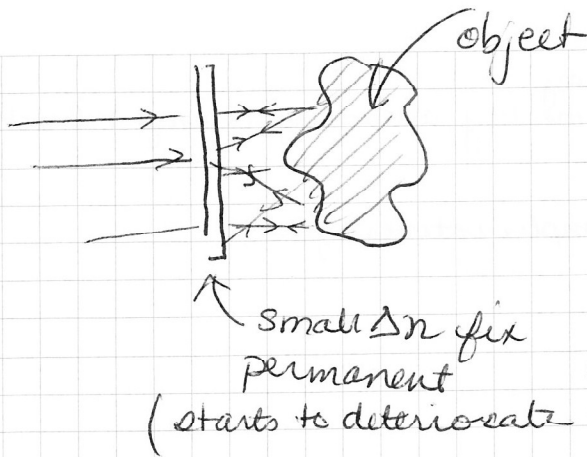 object
small Δn fix
permanent
(starts to deteriorate